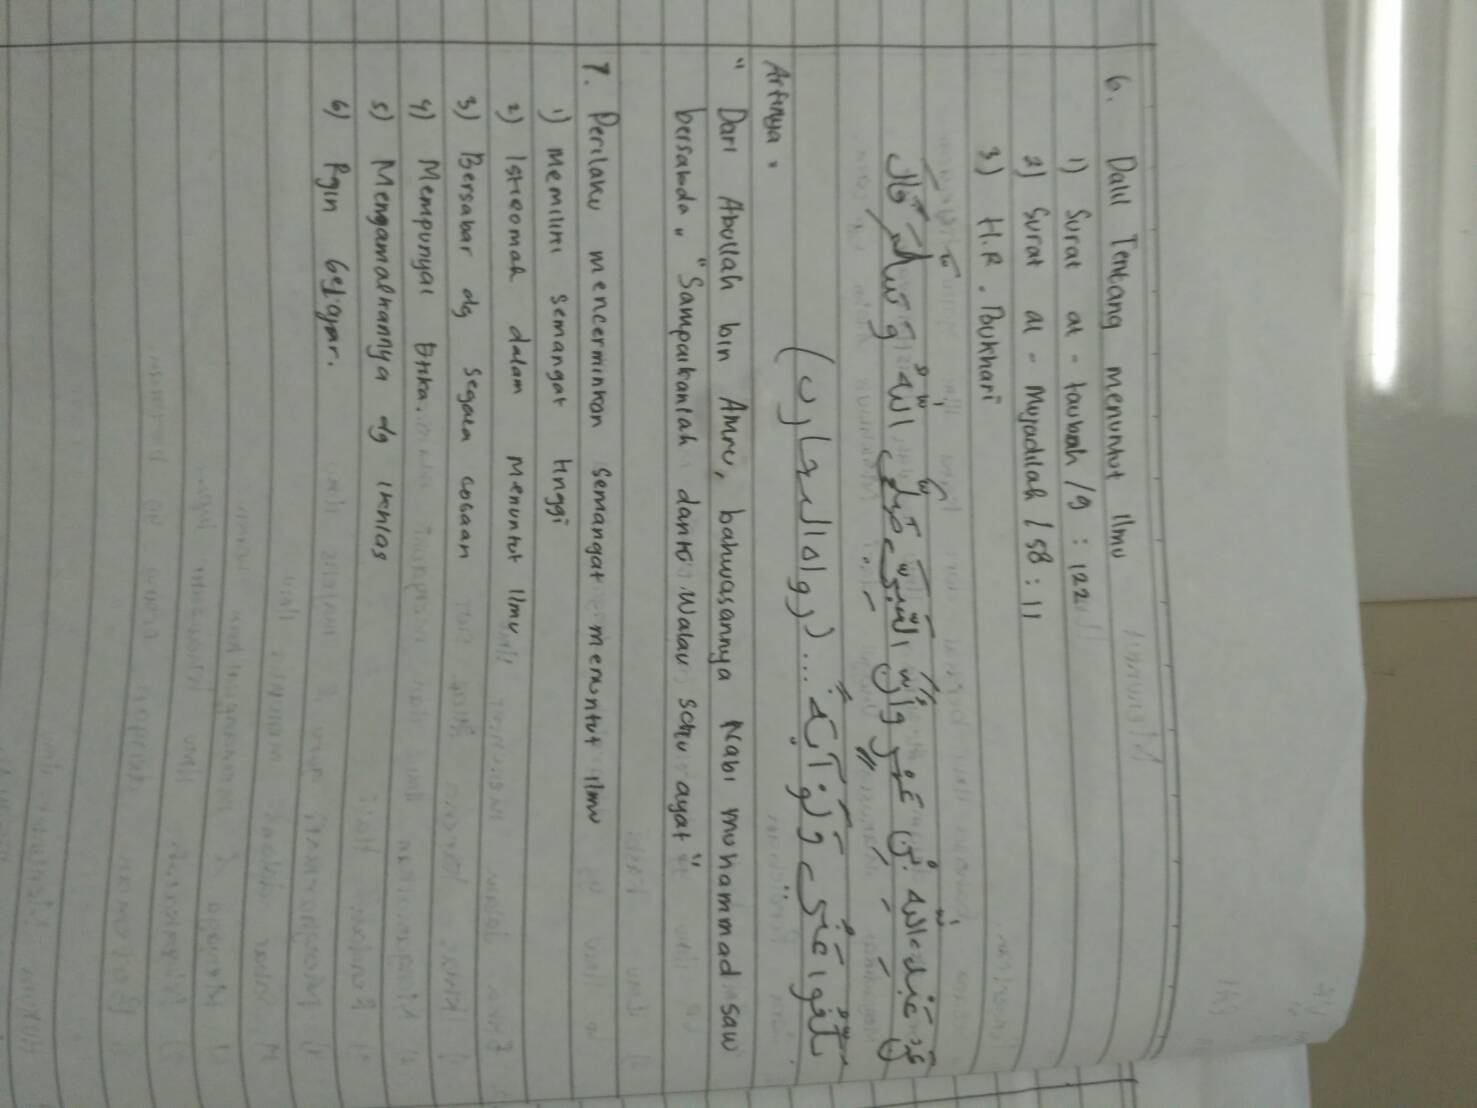 6. Dalil Tentang menuntut Ilmu
1) Surat at - taubah / 9 : 122
2) Surat al - Mujadilah / 58 : 11
3) H.R. Bukhari
عَنْ عَبْدِ اللّٰهِ بْنِ عَمْرٍ وَأَنَّ النَّبِيَّ صَلَّى اللّٰهُ وَسَلَّمَ قَالَ
بَلِّغُوا عَنِّي وَلَوْ آيَةً .... (رواه البخارى)
Artinya :
" Dari Abullah bin Amru, bahwasannya Nabi muhammad saw
bersabda " "Sampaikanlah dariku Walau satu ayat"
7. Perilaku mencerminkan semangat menuntut ilmu
1) Memiliki semangat tinggi
2) Istiqomah dalam menuntut Ilmu
3) Bersabar dg segala cobaan
4) Mempunyai Etika.
5) Mengamalkannya dg ikhlas
6) Rgin belajar.